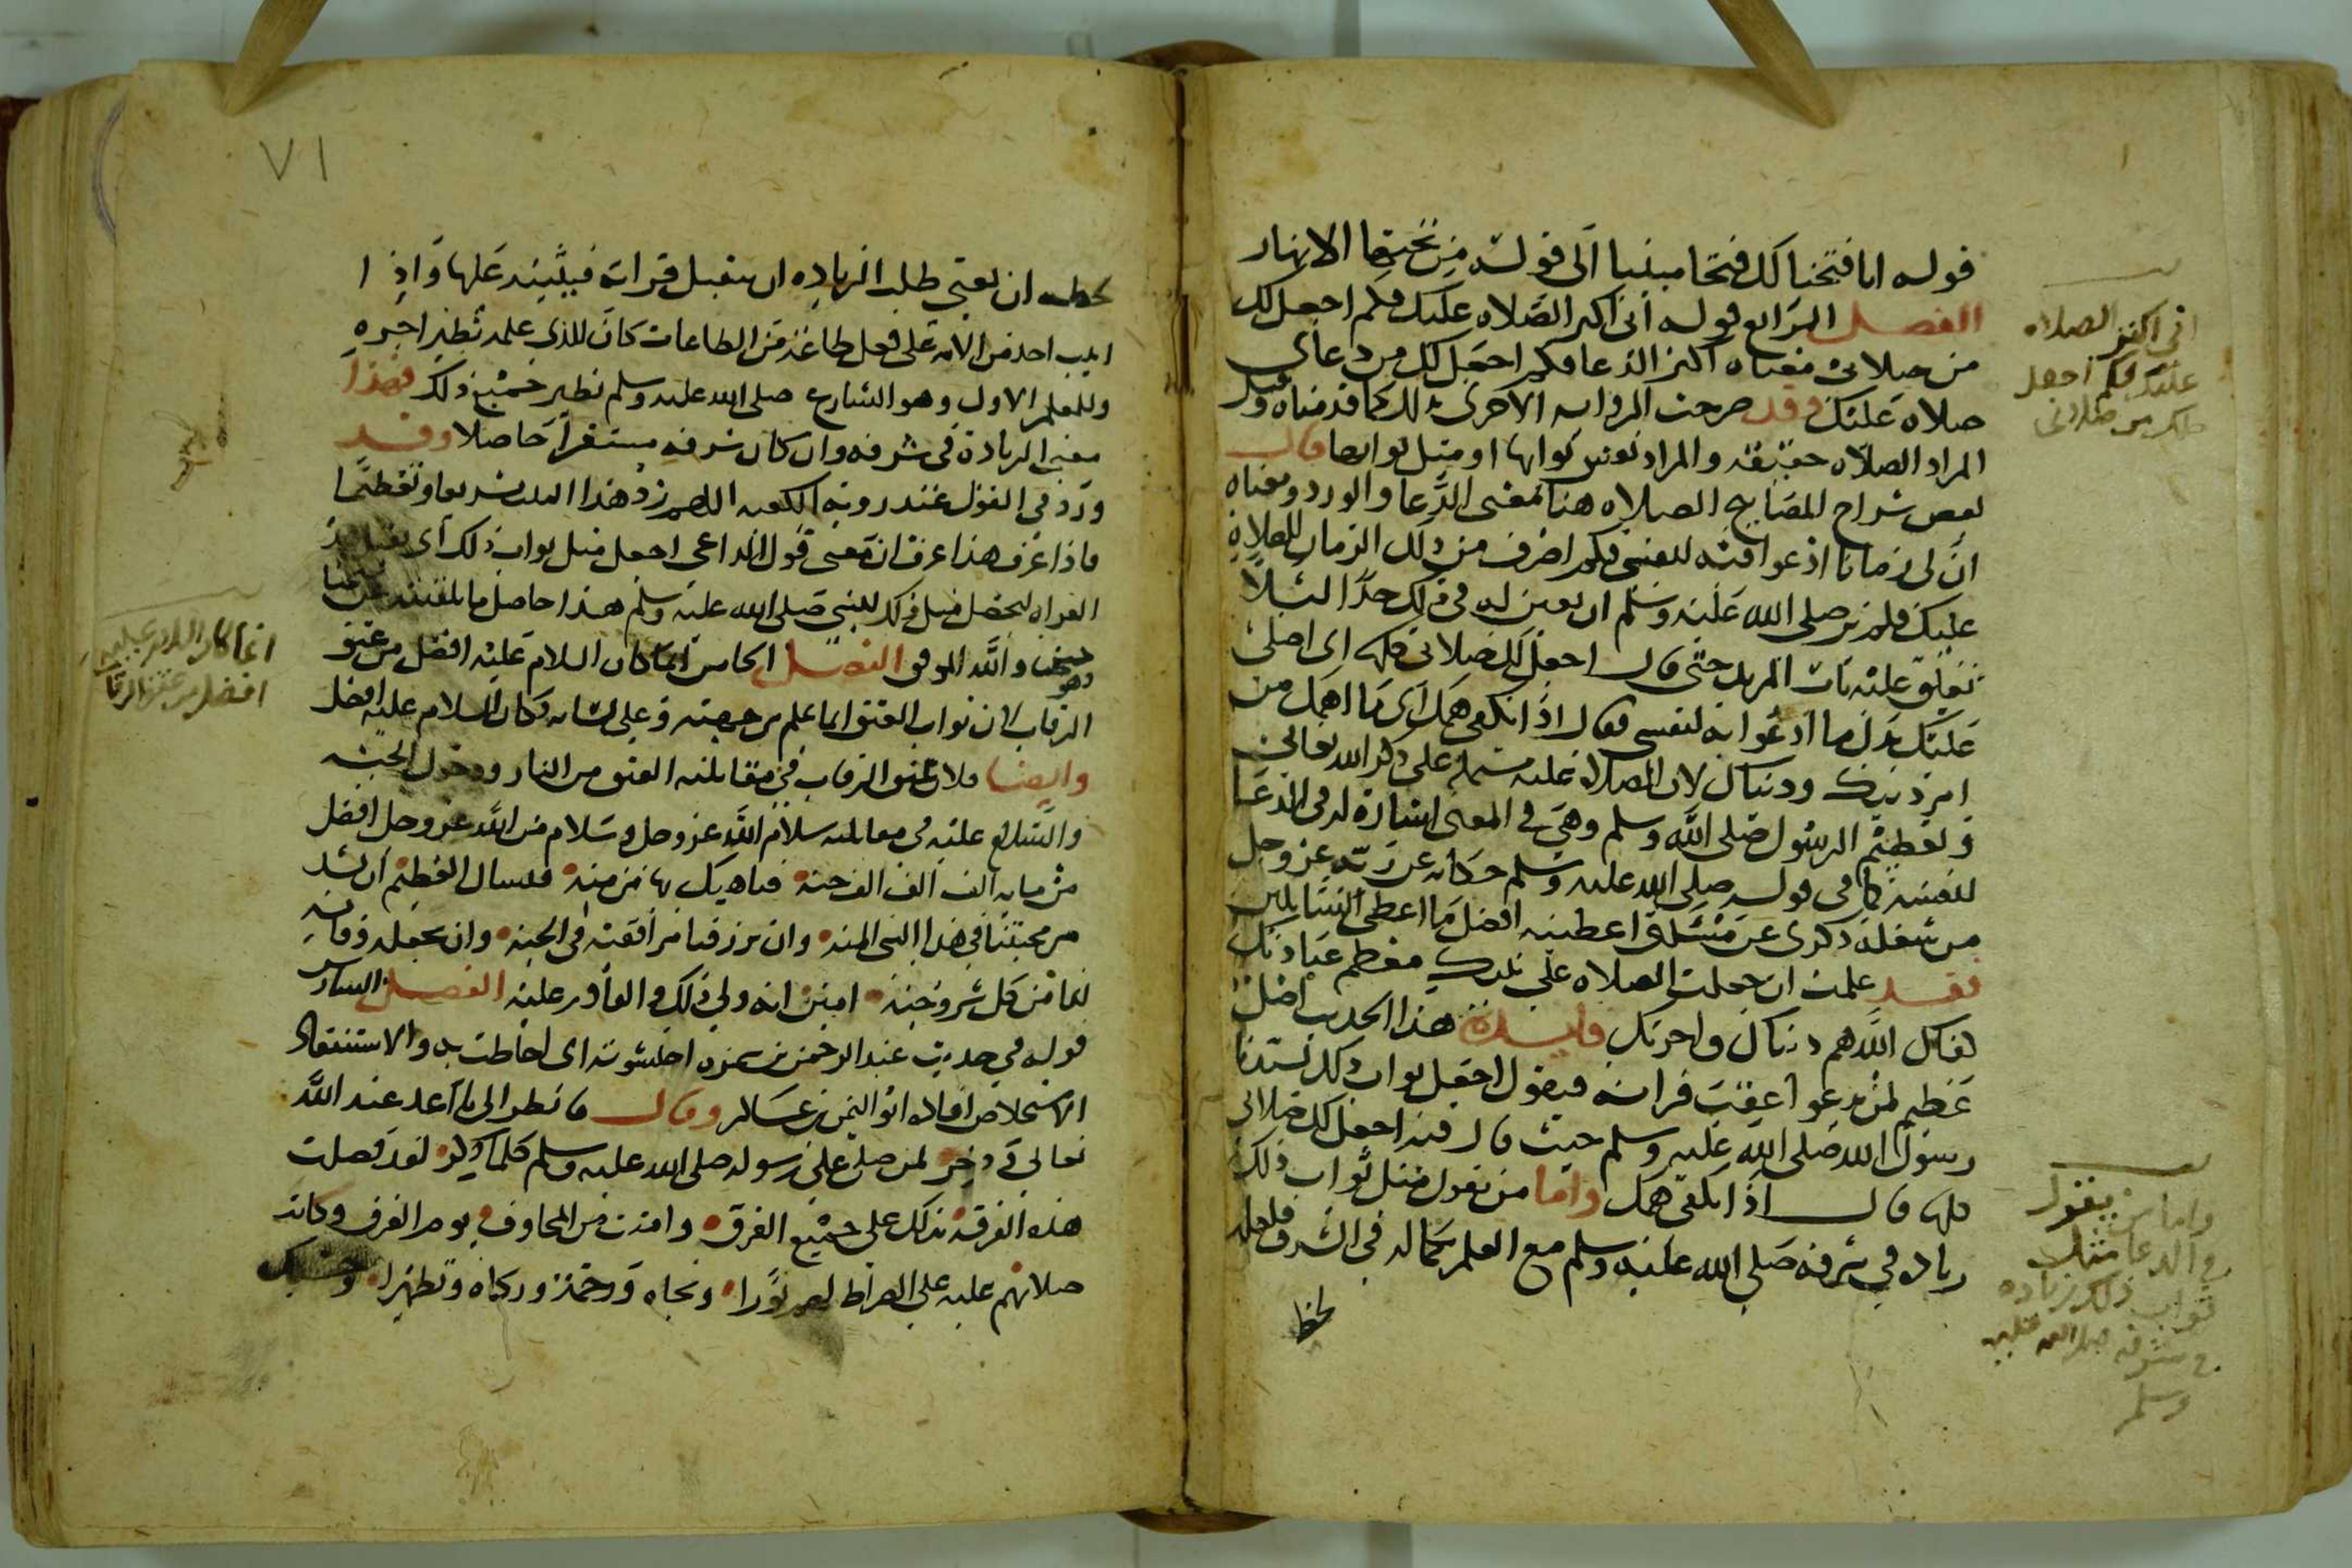 قوله انا فتحنا لك فتحا مبينا الى قوله من تحتها الانهار
الفصل الرابع قوله انى اكثر الصلاه عليك فكم اجعل لك
من صلاتى معناه اكثر الدعا فكم اجعل لك من دعاى
صلاه عليك وقد صرحت الروايه الاخرى بذلك كما قدمناه وقيل
المراد الصلاه حقيقه والمراد نفس ثوابها او مثل ثوابها قال
بعض شراح المصابيح الصلاه هنا بمعنى الدعا والورد ومعناه
ان لى زمانا ادعوا فيه لنفسى فكم اصرف من ذلك الزمان للصلاه
عليك فلم ير صلى الله عليه وسلم ان يعين له فى ذلك حدا لئلا
تغلق عليه باب المزيد حتى قال اجعل لك صلاتى كلها اى اصلى
عليك بدل ما ادعوا به لنفسى فقال اذا تكفى همك اى ما اهمك من
امر دينك ودنياك لان الصلاه عليه مشتمله على ذكر الله تعالى
وتعظيم الرسول صلى الله وسلم وهى فى المعنى اشارة له فى الدعا
لنفسه كما فى قوله صلى الله عليه وسلم حكايه عن ربه عز وجل
من شغله ذكرى عن مسئلتى اعطيته افضل ما اعطى السايلين
فقد علمت ان جعلت الصلاه على نبيك معظم عبادتك
كفاك الله هم دنياك واخرتك فايدة هذا الحديث اصل
عظيم لمن يدعو اعقب قراته فيقول اجعل ثواب ذلك لسيدنا
رسول الله صلى الله عليه وسلم حيث قال فيه اجعل لك صلاتى
كلها قال اذا تكفى همك واما من يقول مثل ثواب ذلك
زياده فى شرفه صلى الله عليه وسلم مع العلم بكماله فى الشرف فلعله
لحظ
انى اكثر الصلاه
عليك فكم اجعل
لك من صلاتى
واما من يقول
فى الدعا مثل
ثواب ذلك زياده
فى شرفه صلى الله عليه
وسلم
٧١
لحظ ان معنى طلب الزياده ان يتقبل قراته فيثيبه عليها واذا
اثيب احد من الامه على فعل طاعة من الطاعات كان للذى علمه نظير اجره
وللمعلم الاول وهو الشارع صلى الله عليه وسلم نظير جميع ذلك فهذا
معنى الزيادة فى شرفه وان كان شرفه مستقرا حاصلا وقد
ورد فى القول عند روية الكعبه اللهم زد هذا البيت تشريفا وتعظيما
فاذا عرف هذا عرف ان معنى قول الداعى اجعل مثل ثواب ذلك اى تقبل هذه
القراه ليحصل مثل ذلك للنبى صلى الله عليه وسلم هذا حاصل ما تلقيته عن شيخنا
والله الموفق الفصل الخامس انما كان السلام عليه افضل من عتق
الرقاب لان ثواب العتق انما علم من جهته وعلى لسانه فكان السلام عليه افضل
وايضا فلان عتق الرقاب فى مقابلته العتق من النار ودخول الجنه
والسلام عليه فى مقابلته سلام الله عز وجل وسلام من الله عز وجل افضل
من مايه الف الف حسنه فناهيك بها من منه فنسال العظيم ان
من محبتنا فى هذا النبى المنه وان يرزقنا مرافقته فى الجنه وان يجعله وقايه
لنا من كل شر وجنه امين انه ولى ذلك والقادر عليه الفصل السادس
قوله فى حديث عبد الرحمن بن سمره احتوشته اى احاطت به والاستنقاذ
الاستخلاص افاده ابو اليمن بن عساكر وقال فانظر الى ما اعد عند الله
تعالى وذخر لمن صلى على رسوله صلى الله عليه وسلم كلما ذكر لقد فضلت
هذه الفرقه بذلك على جميع الفرق وامنت من المخاوف يوم الفرق وكانت
صلاتهم عليه على الصراط لهم نورا ونجاه ورحمة وزكاه وتطهيرا وحسبك
انما كان السلام عليه
افضل من عتق الرقاب